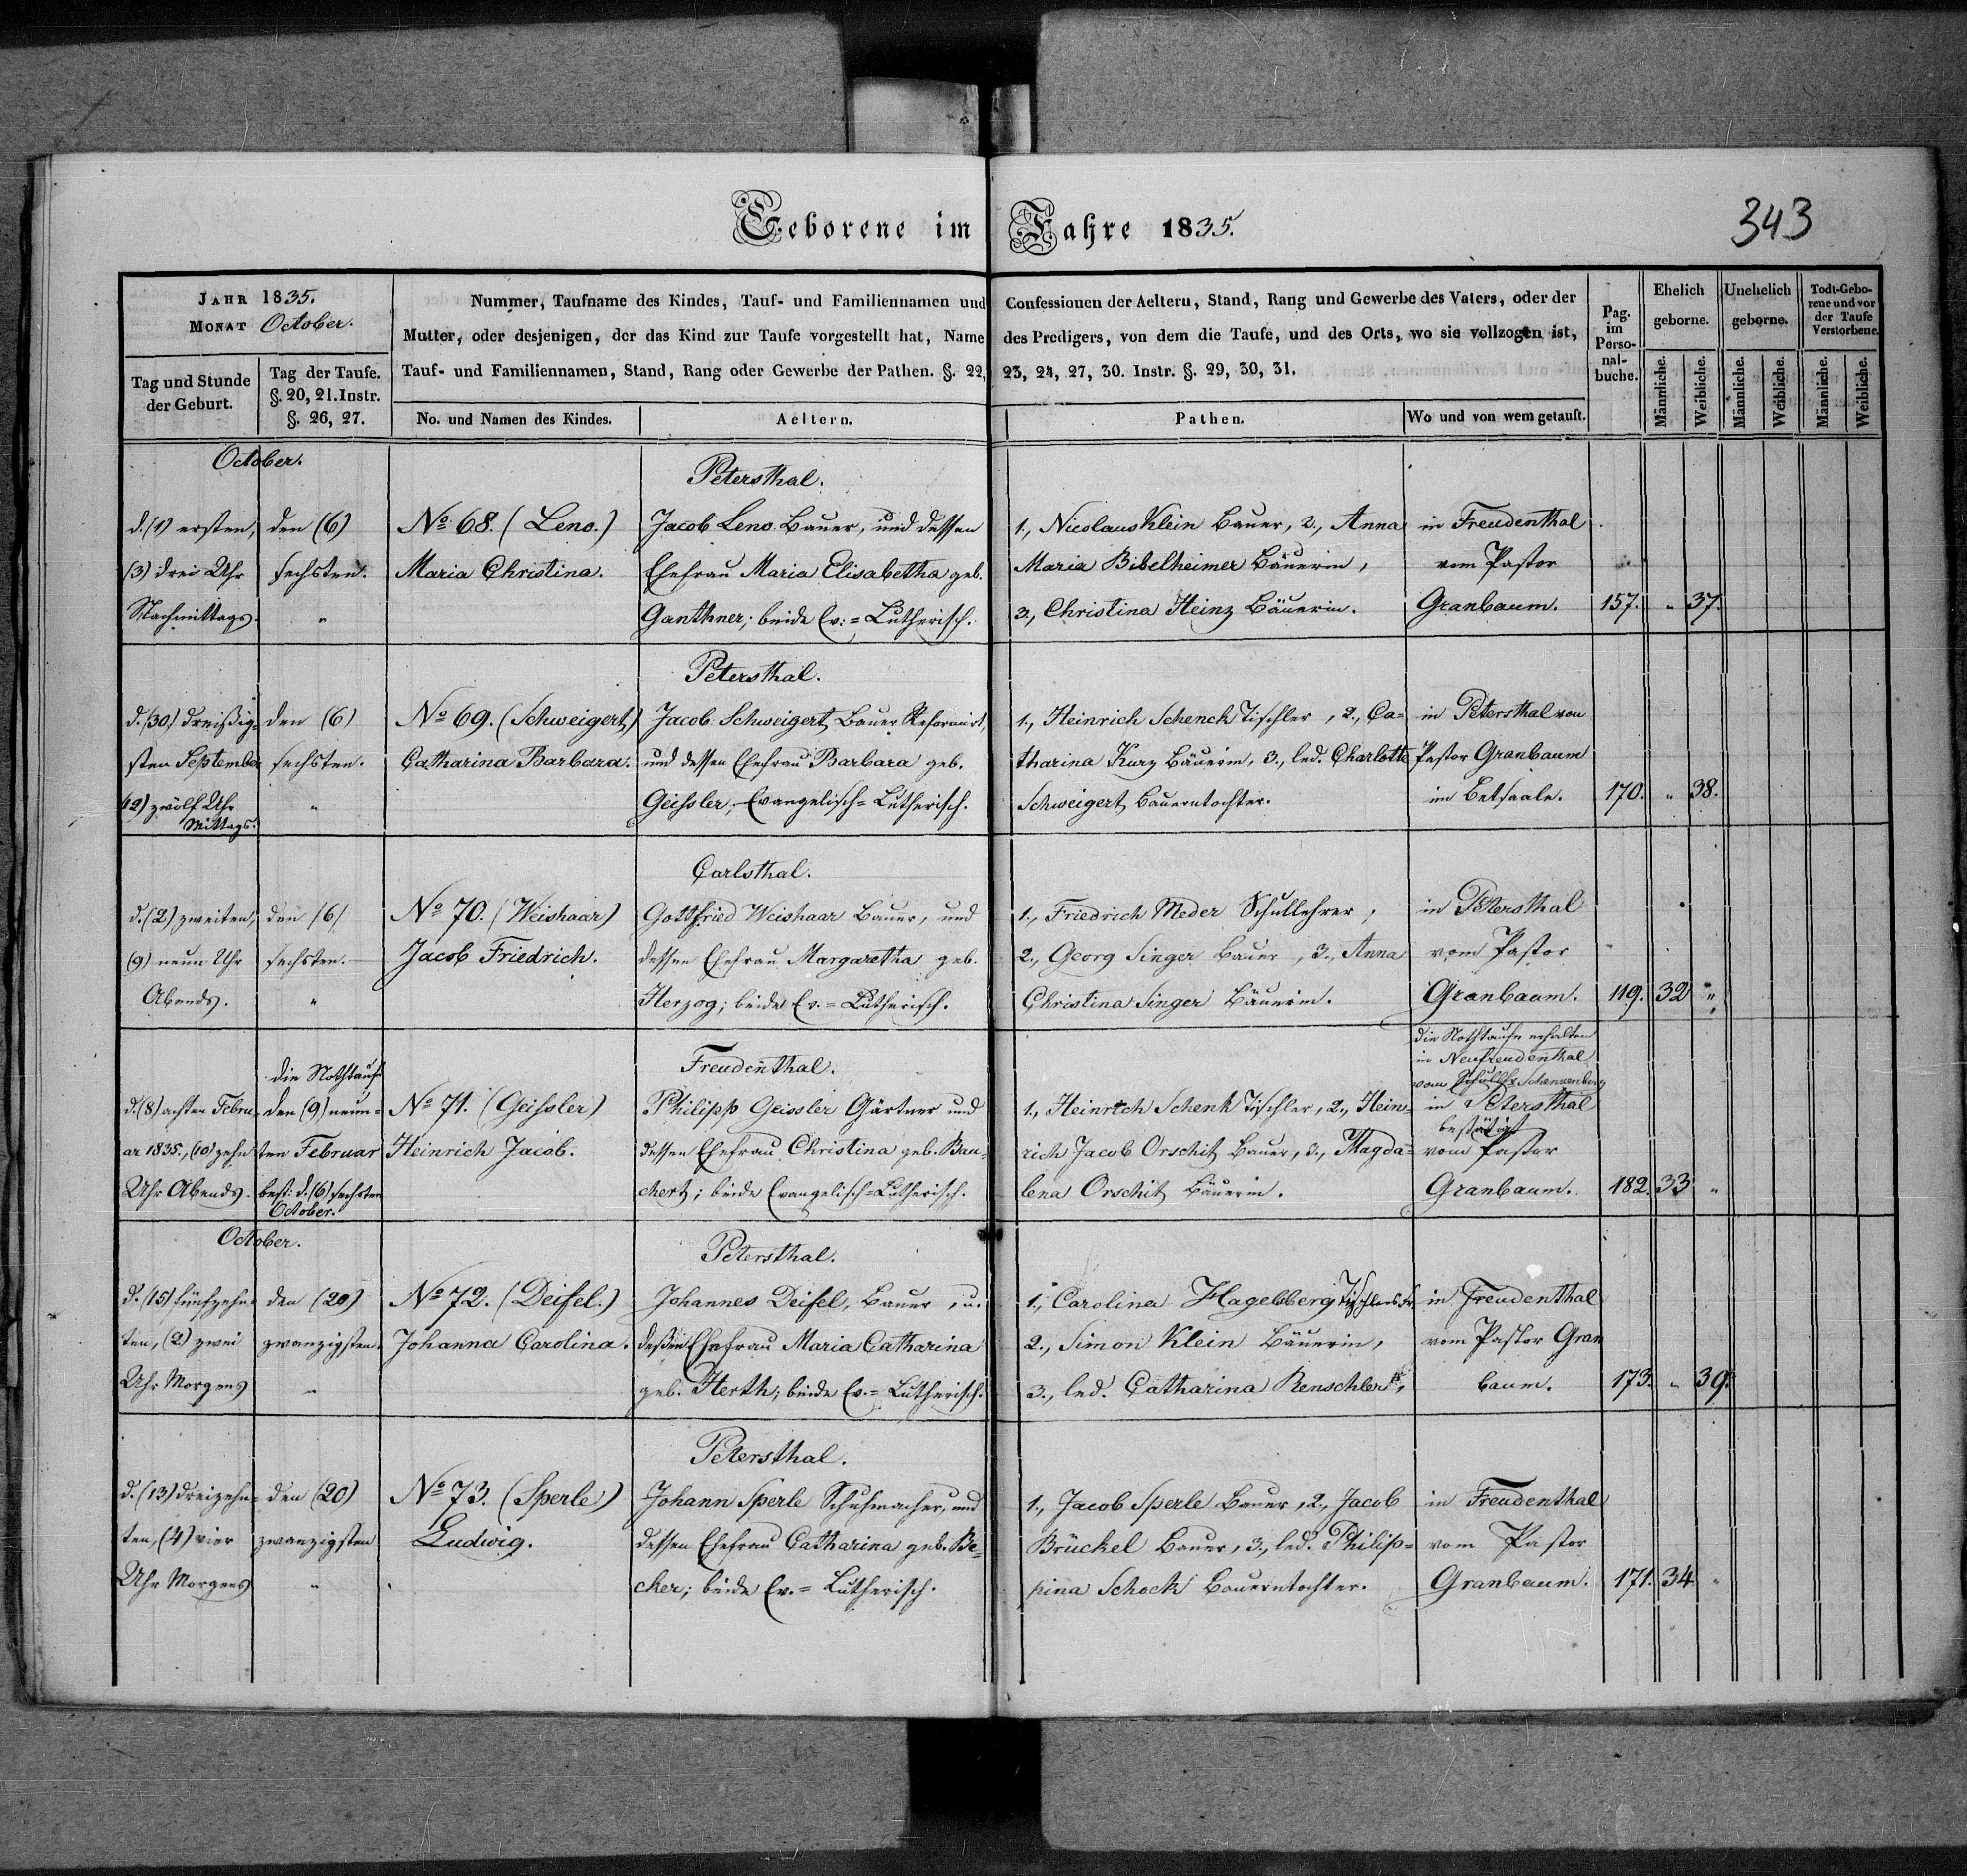 Geborene im Jahre 1835.
343
JAHR 1835.
MONAT October.
Nummer, Taufname des Kindes, Tauf- und Familiennamen und Confessionen der Aeltern, Stand, Rang und Gewerbe des Vaters, oder der
Mutter, oder desjenigen, der das Kind zur Taufe vorgestellt hat, Name des Predigers, von dem die Taufe, und des Orts, wo sie vollzogen ist,
Tauf- und Familiennamen, Stand, Rang oder Gewerbe der Pathen. §. 22, 23, 24, 27, 30. Instr. §. 29, 30, 31.
Tag und Stunde
der Geburt.
Tag der Taufe.
§. 20, 21. Instr.
§. 26, 27.
No. und Namen des Kindes.
Aeltern.
Pathen.
Wo und von wem getauft.
Pag.
im
Perso-
nal-
buche.
Ehelich
geborne.
Unehelich
geborne.
Todt-Gebo-
rene und vor
der Taufe
Verstorbene.
Männliche.
Weibliche.
Männliche.
Weibliche.
Männliche.
Weibliche.
October.
d. (1) ersten,
(3) drei Uhr
Nachmittags.
den (6)
sechsten.
"
No 68. (Leno.)
Maria Christina.
Petersthal.
Jacob Leno Bauer, und dessen
Ehefrau Maria Elisabetha geb.
Ganthner; beide Ev.=Lutherisch.
1., Nicolaus Klein Bauer, 2., Anna
Maria Bibelheimer Bäuerin,
3., Christina Heinz Bäuerin.
in Freudenthal
vom Pastor
Granbaum.
157. " 37.
d. (30) dreißig-
sten September
(12) zwölf Uhr
Mittags.
den (6)
sechsten.
"
No 69. (Schweigert,)
Catharina Barbara.
Petersthal.
Jacob Schweigert Bauer Reformirt,
und dessen Ehefrau Barbara geb.
Geissler, Evangelisch=Lutherisch.
1., Heinrich Schenck Tischler, 2., Ca=
tharina Kurz Bäuerin, 3., led. Charlotte
Schweigert Bauerntochter.
in Petersthal von
Pastor Granbaum
im Betsaale.
170. " 38.
d. (2) zweiten,
(9) neun Uhr
Abends.
den (6)
sechsten.
"
No 70. (Weishaar)
Jacob Friedrich.
Carlsthal.
Gottfried Weishaar Bauer, und
dessen Ehefrau Margaretha geb.
Herzog; beide Ev.=Lutherisch.
1., Friedrich Meder Schullehrer,
2., Georg Singer Bauer, 3., Anna
Christina Singer Bäuerin.
in Petersthal
vom Pastor
Granbaum.
119. 32 "
d. (8) achten Febru-
ar 1835., (10) zehn
Uhr Abends.
die Nothtaufe
den (9) neun=
ten Februar
best: d. (6) sechsten
October.
No 71. (Geissler)
Heinrich Jacob.
Freudenthal.
Philipp Geissler Gärtner und
dessen Ehefrau Christina geb. Bau-
chert; beide Evangelisch=Lutherisch.
1., Heinrich Schenk Tischler, 2., Hein=
rich Jacob Orschit Bauer, 3., Magda=
lena Orschit Bäuerin.
die Nothtaufe erhalten
in Neufreudenthal
vom
in Petersthal
bestätigt
vom Pastor
Granbaum.
182. 33 "
October.
d. (15) fünfzehn-
ten, (2) zwei
Uhr Morgens
den (20)
zwanzigsten.
"
No 72. (Deisel.)
Johanna Carolina.
Petersthal.
Johannes Deisel, Bauer, u.
dessen Ehefrau Maria Catharina
geb. Herth; beide Ev.=Lutherisch.
1., Carolina Hagelsberg Tischlers Fr.
2., Simon Klein Bäuerin,
3., led. Catharina Renschler,
in Freudenthal
vom Pastor Gran
baum.
173. " 39.
d. (13) dreizehn=
ten, (4) vier
Uhr Morgens
den (20)
zwanzigsten
"
No 73. (Sperle)
Ludwig.
Petersthal.
Johann Sperle Schuhmacher, und
dessen Ehefrau Catharina geb. Be-
cker; beide Ev.=Lutherisch.
1., Jacob Sperle Bauer, 2., Jacob
Brückel Bauer, 3., led. Philip=
pina Schock Bauerntochter.
in Freudenthal
vom Pastor
Granbaum.
171. 34. "